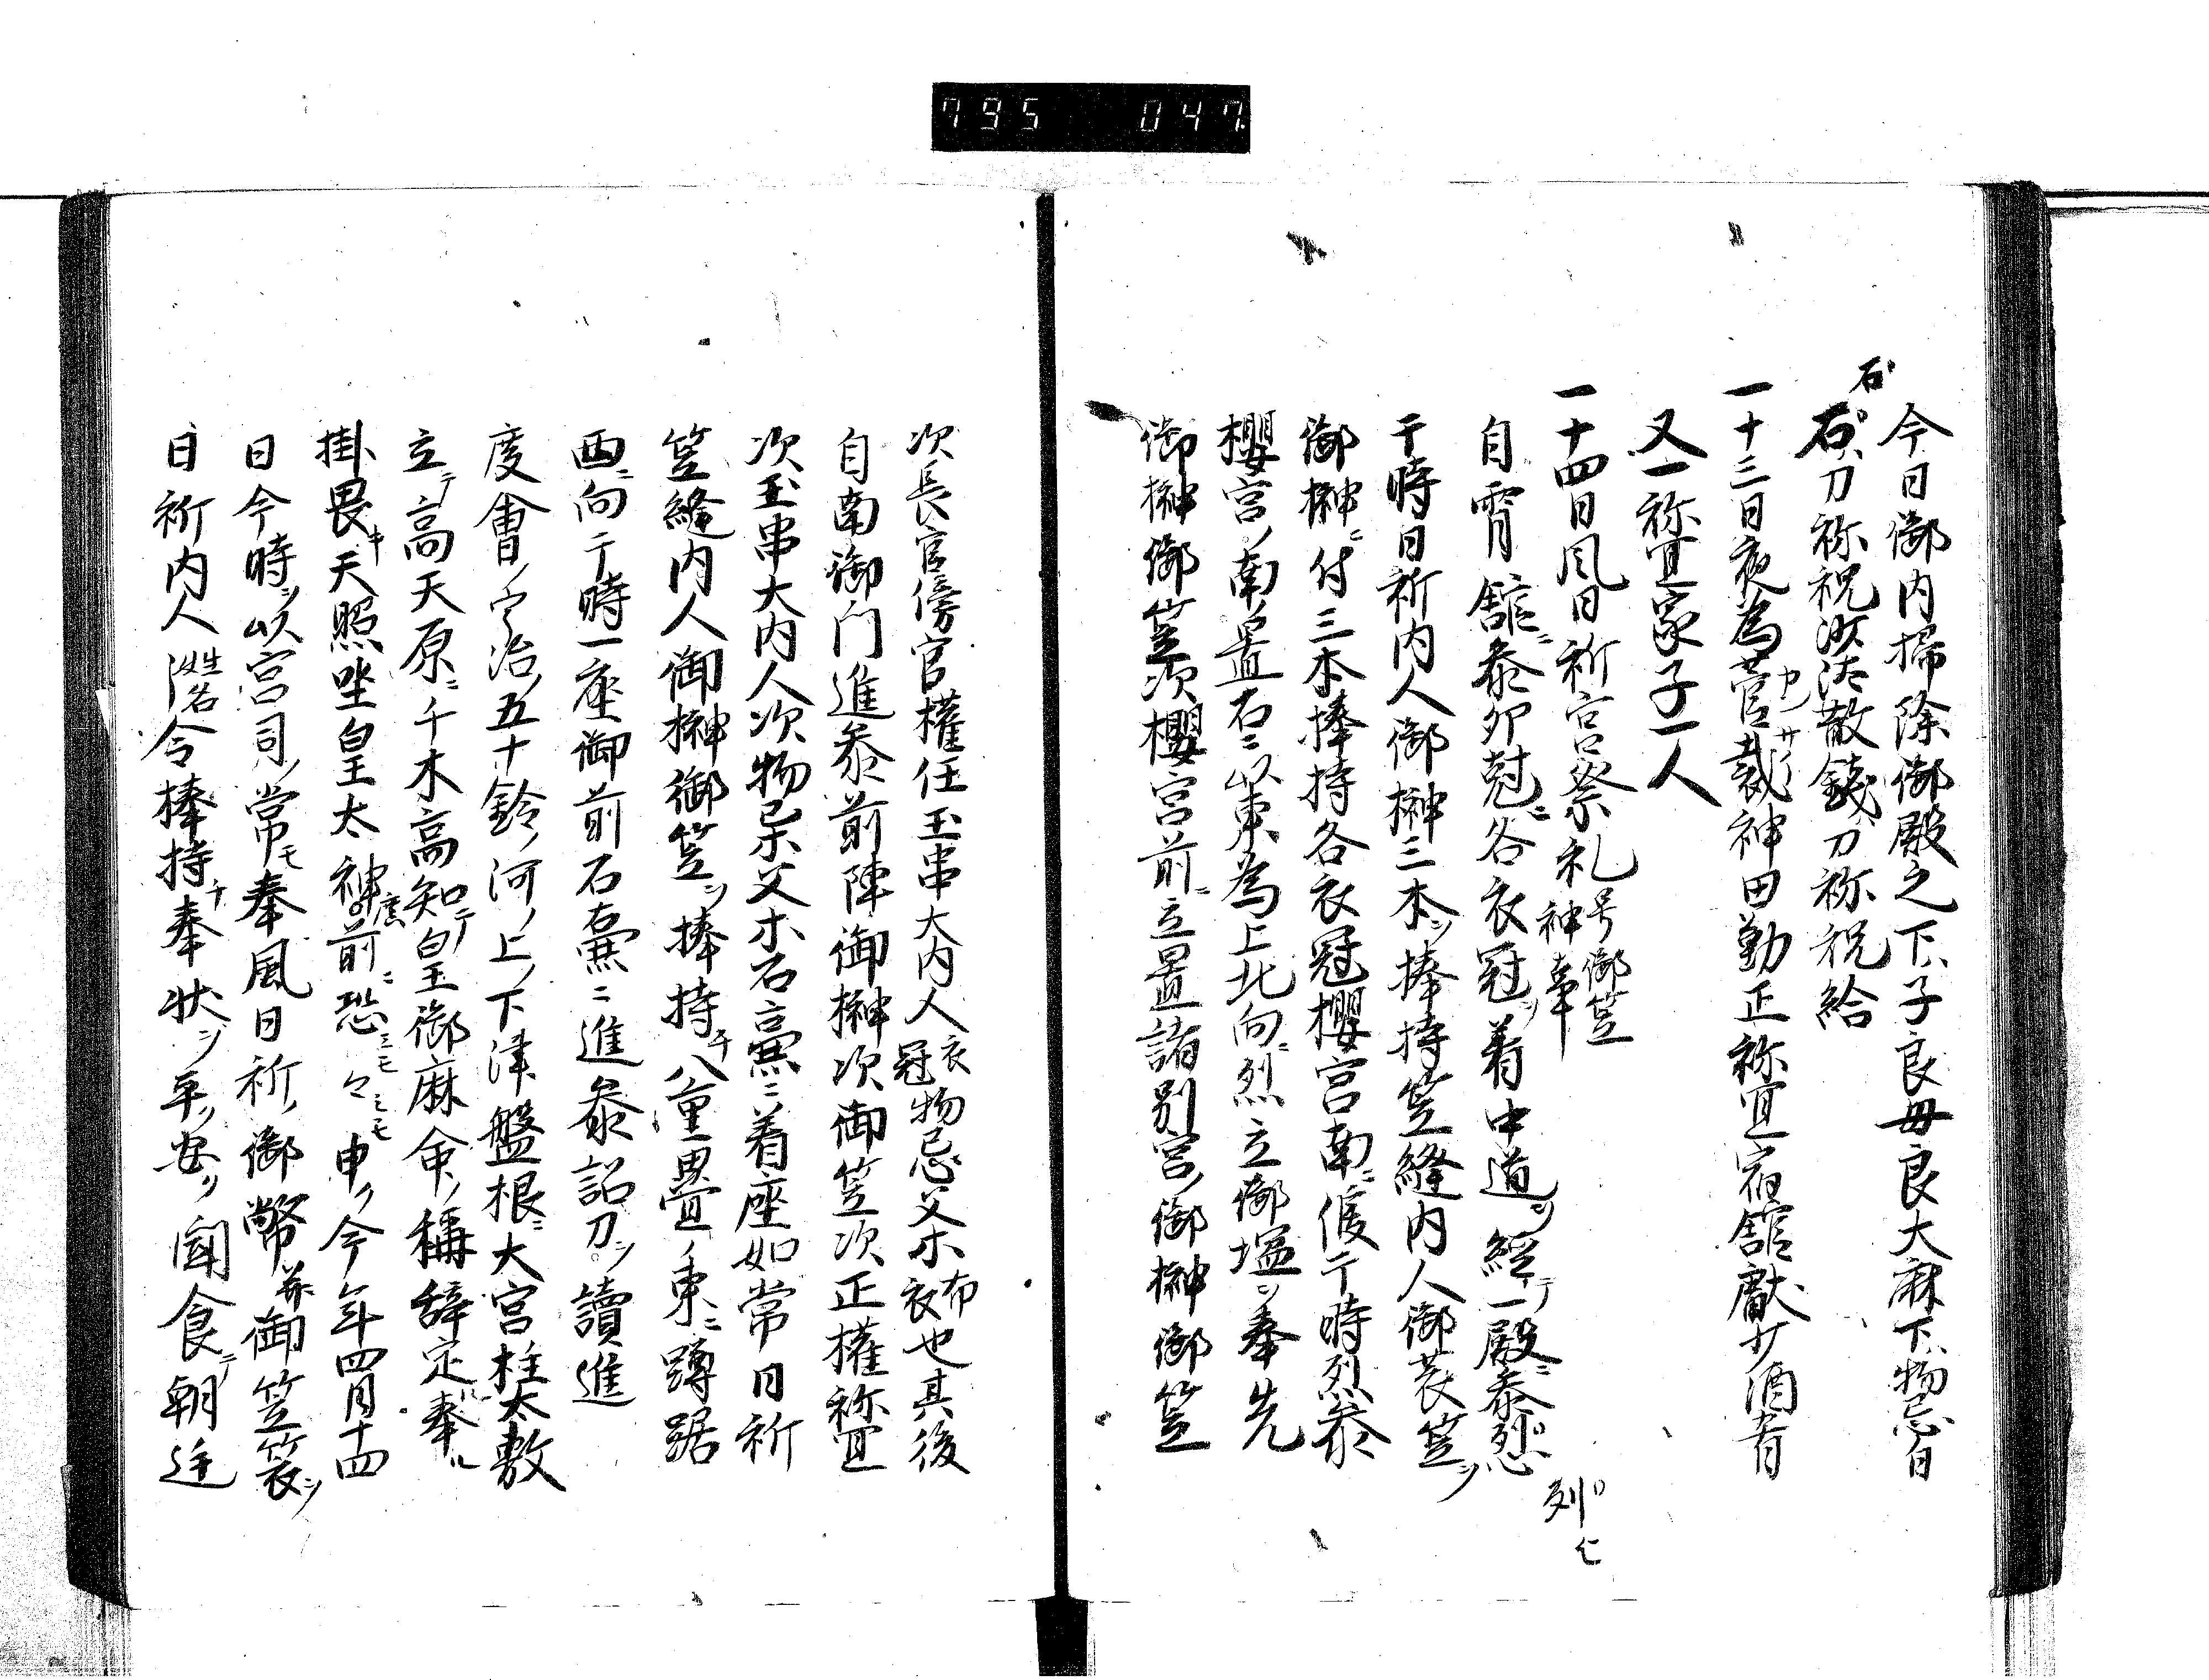 795 047
今日御内掃除御殿之下、子良母良大麻下、物忌自
石
石、刀祢祝沙汰散錢刀祢祝給
一十三日夜為菅裁神田勤正祢宜宿舘獻サ酒肴
又一祢宜家子一人
一十四日風日祈宮祭礼号御笠神事
自宵舘ニ叅卯尅ニ各衣冠ヲ着中道ヲ經テ一殿ニ叅烈
列イ
于時日祈内人御榊三本ヲ捧持笠縫内人御蓑笠ヲ
御榊ニ付三本捧持各衣冠櫻宮南ニ候于時烈叅
櫻宮ノ南ノ置石ニ以東為上北向ニ烈立御塩ヲ奉先
御榊御笠次櫻宮前ニ立置諸別宮ノ御榊御笠
次長官傍官權任玉串大内人衣冠物忌父ホ布衣也其後
自南御门進叅前陣御榊次御笠次正權祢宜
次玉串大内人次物忌父ホ石壷ニ着座如常日祈
笠縫内人御榊御笠ヲ捧持チ八重疊ノ東ニ蹲踞
西ニ向于時一座御前石壷ニ進叅詔刀ヲ讀進
度會ノ宇治ノ五十鈴ノ河ノ上ノ下津盤根ニ大宮柱太敷
立テ高天原ニ千木高知テ皇御麻命ノ稱辞定奉ル
掛畏キ天照坐皇太神ノ廣前ニ恐ミモ々ミモ申ク今年四月十四
日今時ヲ以宮司ノ常モ奉風日祈ノ御幣并御笠蓑ヲ
日祈内人姓名令捧持チ奉状ヲ平ク安ク聞食テ朝廷